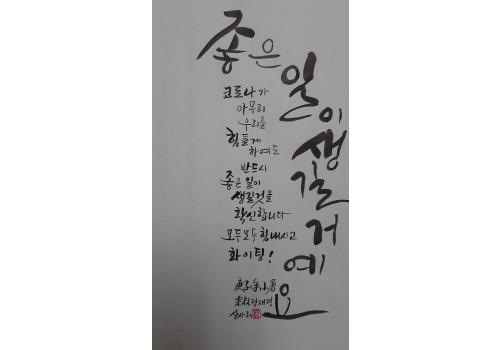 좋은
일이
생길
거예요
코로나가
아무리
우리를
힘들게
하여도
반드시
좋은 일이
생길것을
확신합니다
모두모두 힘내시고
화이팅!
庚子年 小暑